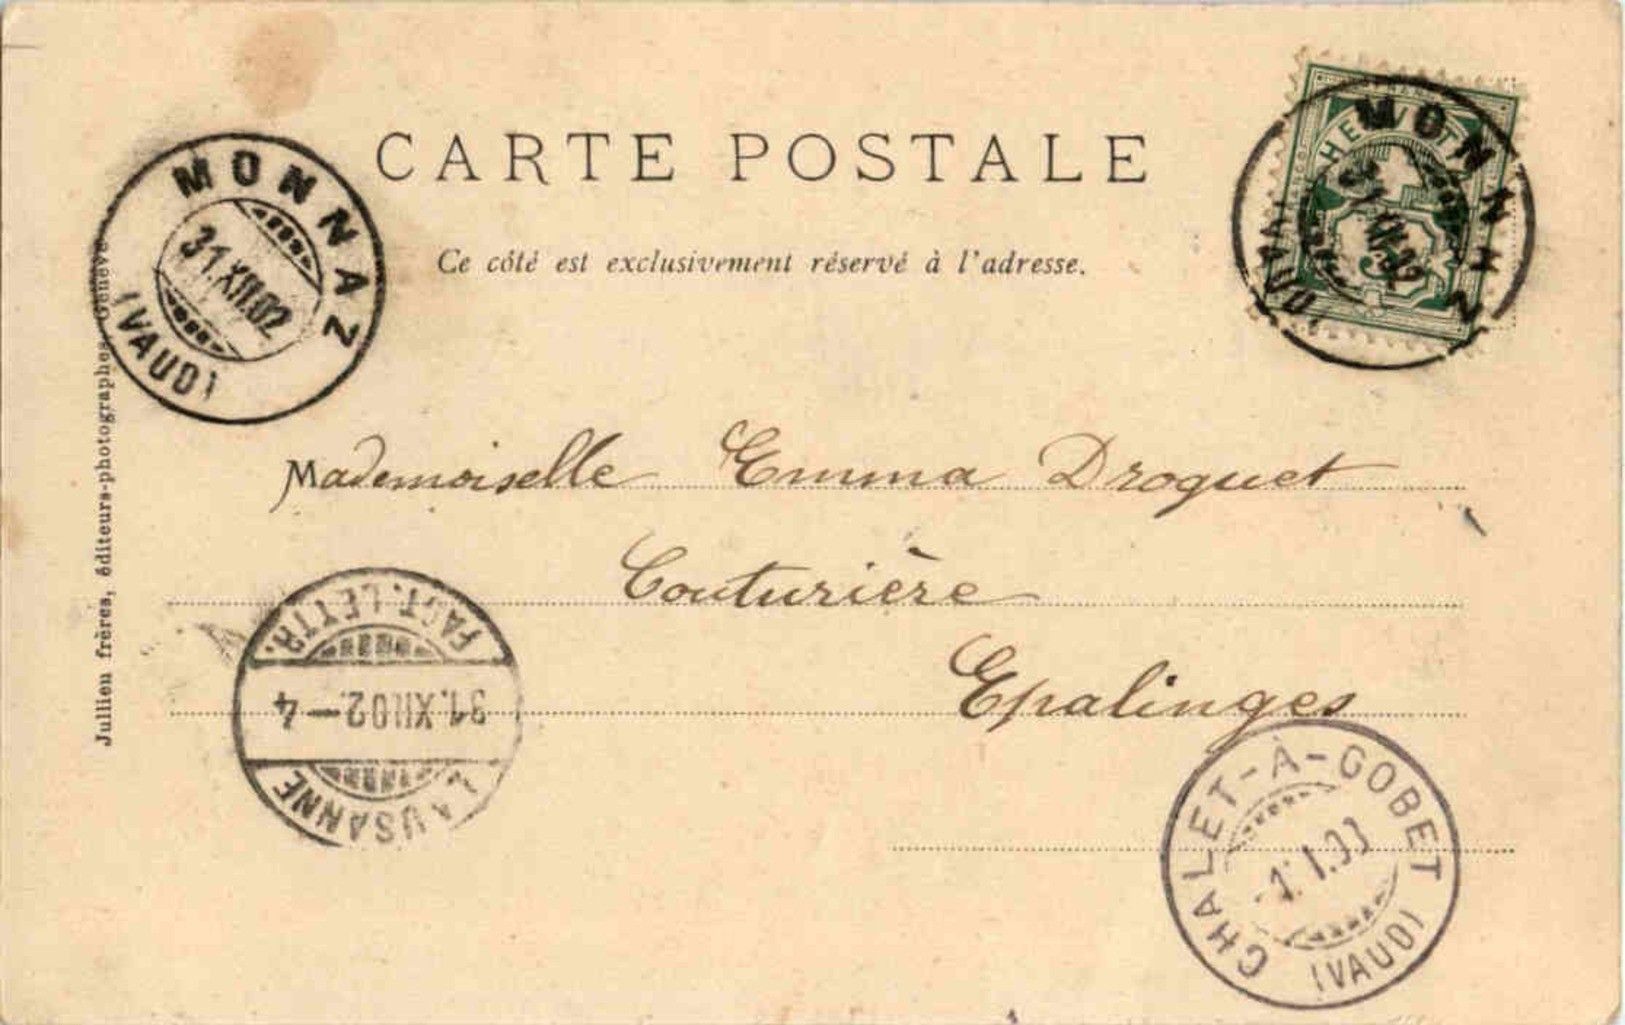 CARTE POSTALE
Ce côté est exclusivement réservé à l'adresse.
MONNAZ
31.XII.02
(VAUD)
HELVETIA
MONNAZ
31.XII.02
(VAUD)
Mademoiselle Emma Droguet
Couturière
Epalinges
LAUSANNE
31.XII.02.-4
FACT. LETTR.
CHALET-À-GOBET
1.I.03
(VAUD)
Jullien frères, éditeurs-photographes, Genève